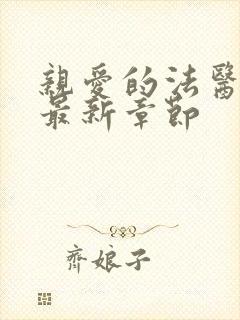 親愛的法醫
最新章節
齊娘子